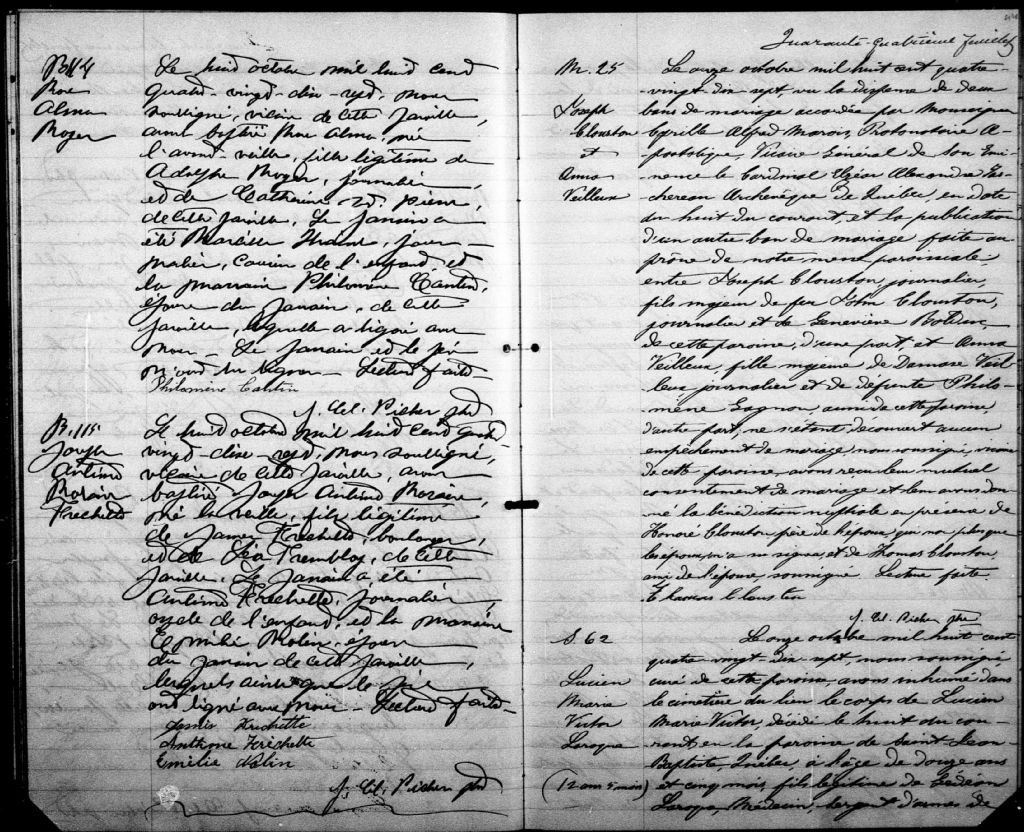 B.114
Rose
Alma
Roger
Le huit octobre mil huit cent
quatre-vingt-dix-sept, nous
soussigné, vicaire de cette paroisse,
avons baptisé Rose Alma, née
l'avant-veille, fille légitime de
Adolphe Roger, journalier,
et de Catherine St. Pierre,
de cette paroisse. Le parrain a
été jour-
nalier, cousin de l'enfant, et
la marraine Philomène Cantin,
épouse du parrain, de cette
paroisse, laquelle a signé avec
nous. Le parrain et le père
n'ont su signer. Lecture faite.
Philomène Cantin
J. Ed. Picher ptre
B.115
Joseph
Antime
Frechette
Le huit octobre mil huit cent quatre
vingt-dix-sept, nous soussigné,
vicaire de cette paroisse, avons
baptisé Joseph Antime
né la veille, fils légitime
de James Frechette, boulanger,
et de Léa Tremblay, de cette
paroisse. Le parrain a été
Antime Frechette, journalier,
oncle de l'enfant, et la marraine
Emilie épouse
du parrain de cette paroisse,
lesquels ainsi que le père
ont signé avec nous. Lecture faite.
James Frechette
Anthime Fréchette
Emélie
J. Ed. Picher ptre
Quarante-quatrième feuillet
M. 25
Joseph
Clouston
et
Anna
Veilleux
Le onze octobre mil huit cent quatre-
-vingt-dix-sept, vu la dispense de deux
bans de mariage accordée par Monseigneur
Cyrille Alfred Marois, Protonotaire A-
postolique, Vicaire Général de Son Emi-
nence le Cardinal Elzéar Alexandre Tas-
chereau Archevêque de Québec, en date
du huit du courant et la publication
d'un autre ban de mariage faite au
prône de notre messe paroissiale
entre Joseph Clouston, journalier,
fils majeur de feu John Clouston,
journalier et de Geneviève
de cette paroisse, d'une part, et Anna
Veilleux, fille majeure de Damase Veil-
leux journalier et de défunte Philo-
mène Gagnon, aussi de cette paroisse,
d'autre part, ne s'étant découvert aucun
empêchement de mariage, nous soussigné,
de cette paroisse, avons reçu leur mutuel
consentement de mariage et leur avons don-
né la bénédiction nuptiale en présence de
Honoré Clouston frère de l'époux, qui non plus que
les époux, n'a su signer, et de Thomas Clouston,
ami de l'épouse, soussigné. Lecture faite.
Thomas Clouston
J. Ed. Picher ptre
S. 62
Lucien
Marie
Victor
Larogue
(12 ans 5 mois)
Le onze octobre mil huit cent
quatre-vingt-dix-sept, nous soussigné
curé de cette paroisse, avons inhumé dans
le cimetière du lieu le corps de Lucien
Marie Victor, décédé le huit du cou-
rant en la paroisse de Saint Jean-
Baptiste, Québec, à l'âge de douze ans
et cinq mois, fils légitime de Gédéon
Larogue, Médecin, sergent d'armes de